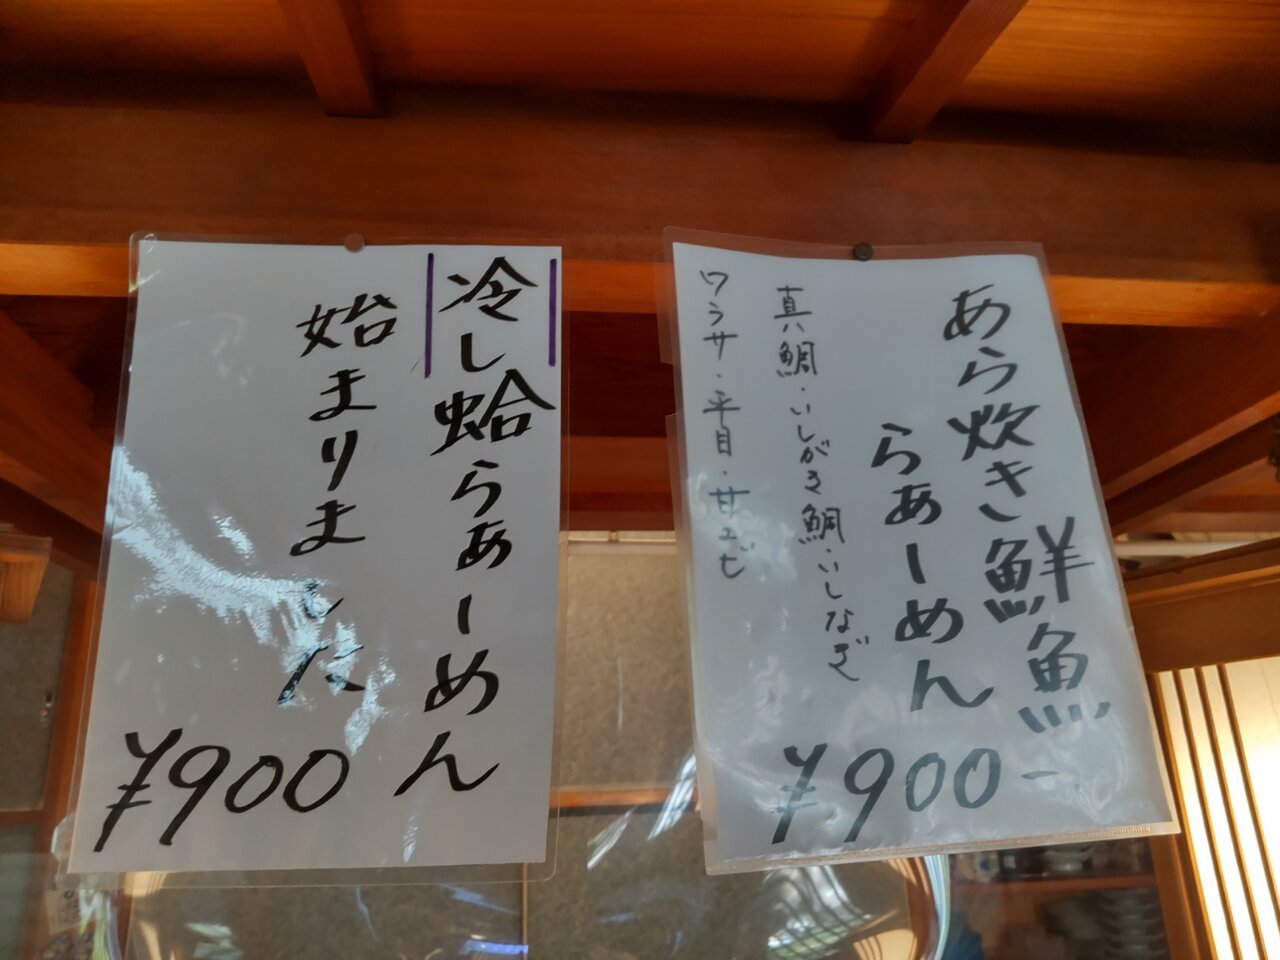 あら炊き鮮魚
らぁーめん
真鯛・いしがき鯛・いしなぎ
ワラサ・平目・甘エビ
¥900-
冷し蛤らぁーめん
始まりました
¥900